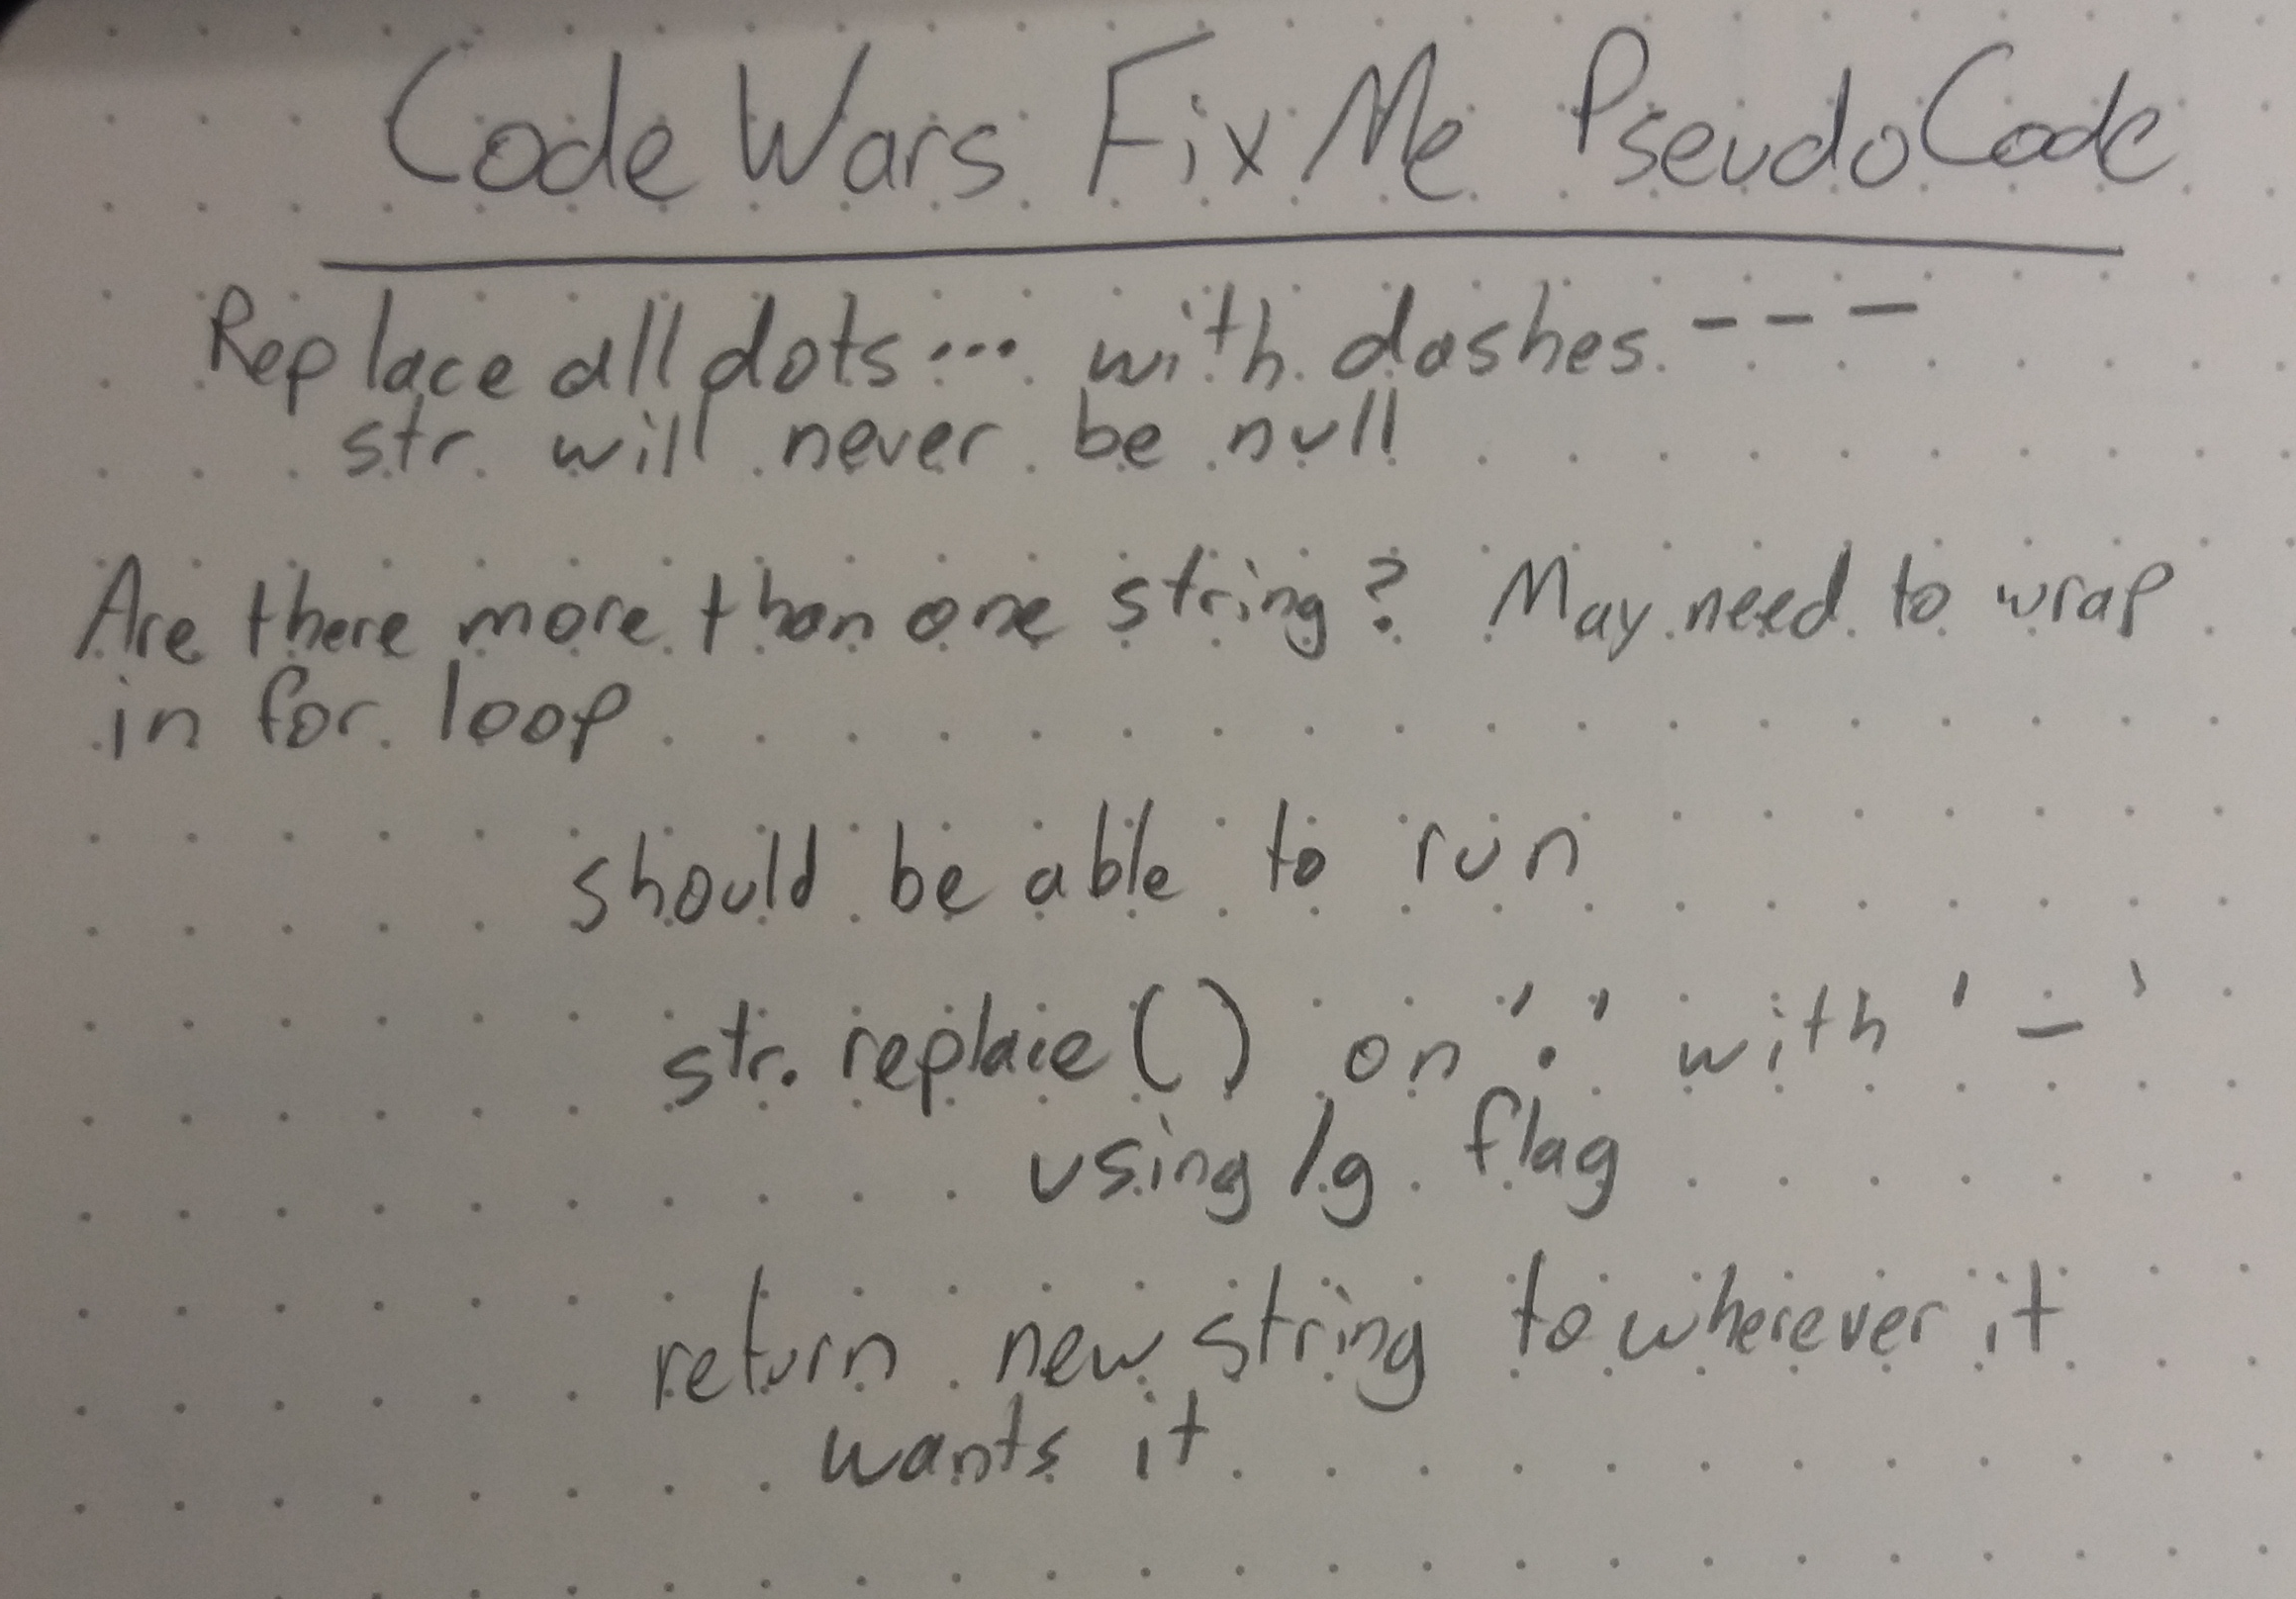 Code Wars Fix Me PseudoCode
Replace all dots... with dashes ---
str will never be null
Are there more than one string? May need to wrap
in for loop
should be able to run
str.replace() on '.' with '-'
using /g flag
return new string to wherever it
wants it